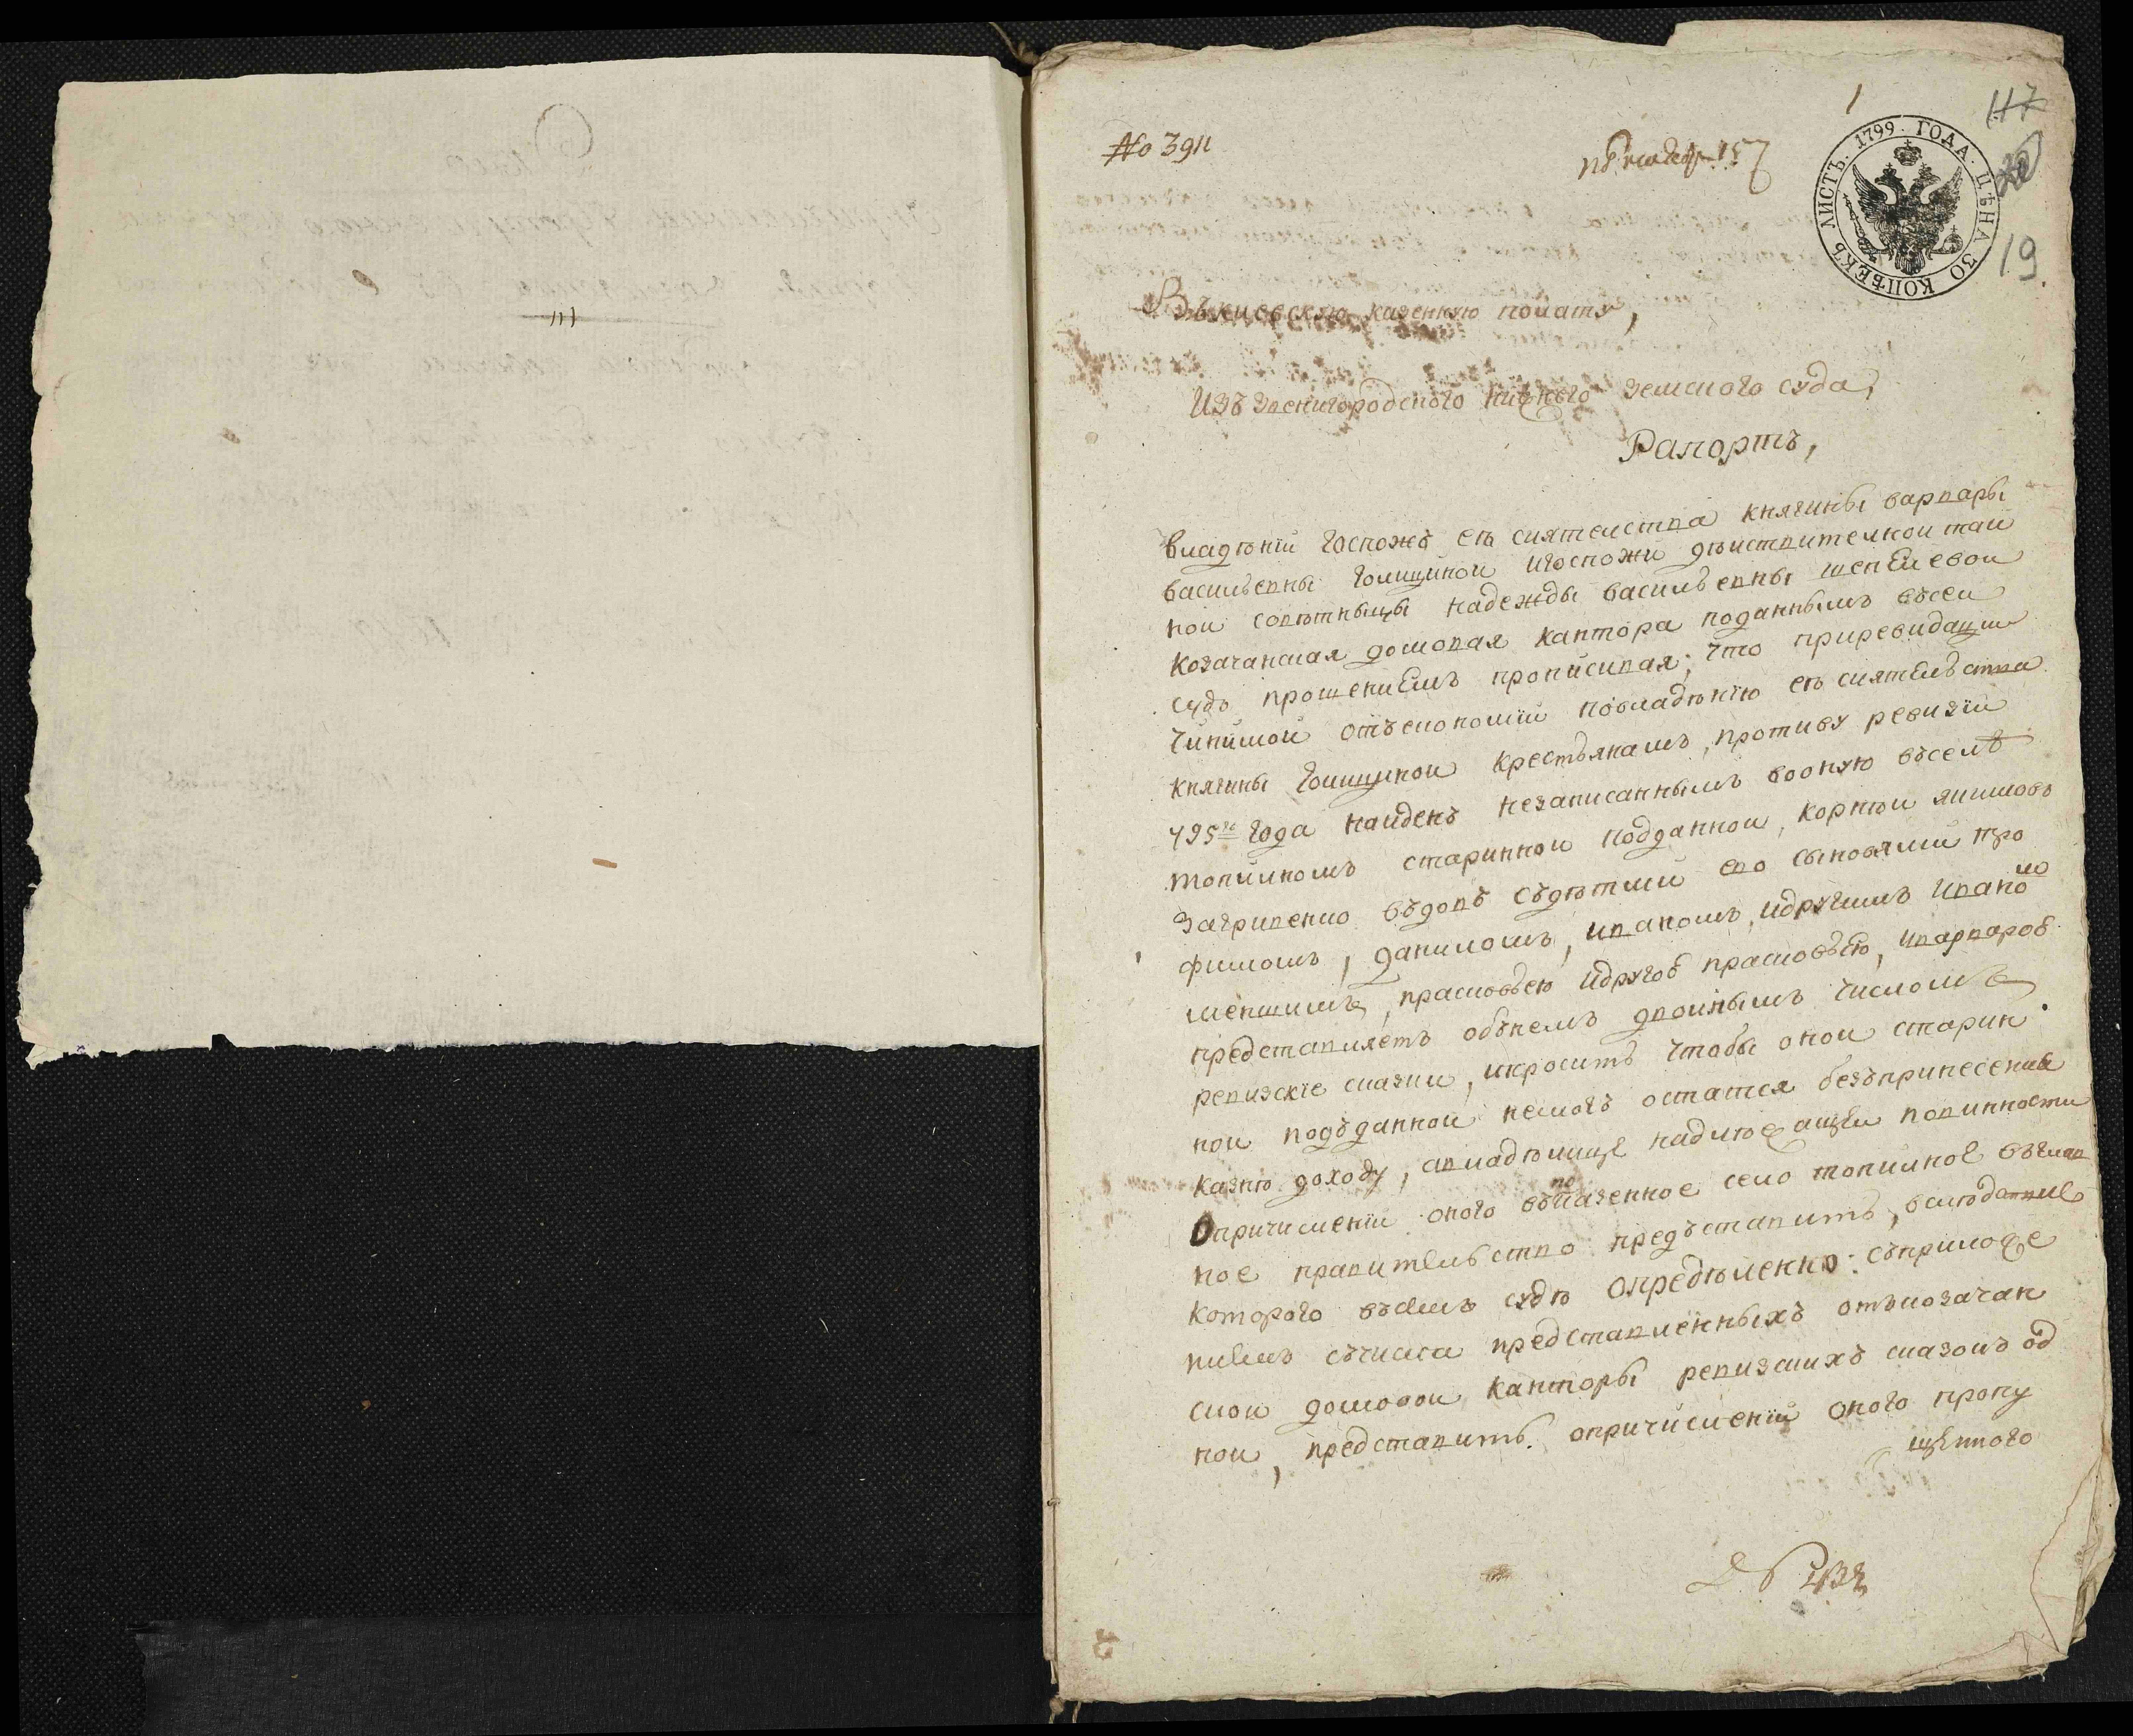 1
117
№ 3911
19
ЛИСТЪ. 1799. ГОДА. ЦѢНА 30 КОПѢЕКЪ
Въ киевскую казенную полату,
Изъ звенигородского нижнего земского суда,
Рапортъ,
владѣнїи госпожъ еѧ сиятелства княгины варвары
василъевны голицыной игоспожи дѣиствителной таи
ной совѣтныцы надежды василъевны шепелевои
козачанская домовая кантора поданнымъ въсеи
судъ прошениемъ прописивая; что приревидации
чинимой отъекономїи повладѣнїю еѧ сиятелъства
княгины голицыной крестъянамъ, противу ревизїи
795го года найденъ незаписаннымъ вооную въселѣ
топилномъ старинной подданной, корнѣи якимовъ
загривенко въдовъ съдѣтми его сыновями тро
фимомъ, даниломъ, иваномъ, идругимъ иваномъ
меншимъ, прасковъею идругое прасковъею, иварваров
представляетъ объвемъ двойнымъ числомъ
ревизскїе сказки, ипроситъ чтобы оной старин
ной подъданной немогъ остатся безъпринесения
казнѣ доходу, авладѣлице надлежащеи повинности
Опричисленїи оного въпоказенное село топилное въглав
ное правителъство представитъ, вследствие
которого въсемъ судѣ Опредѣленно: съприложе
ниемъ съчисла представленныхъ отъкозачан
ской домовои канторы ревизскихъ сказокъ од
ной, представитъ опричисленїи оного пропу
щенного